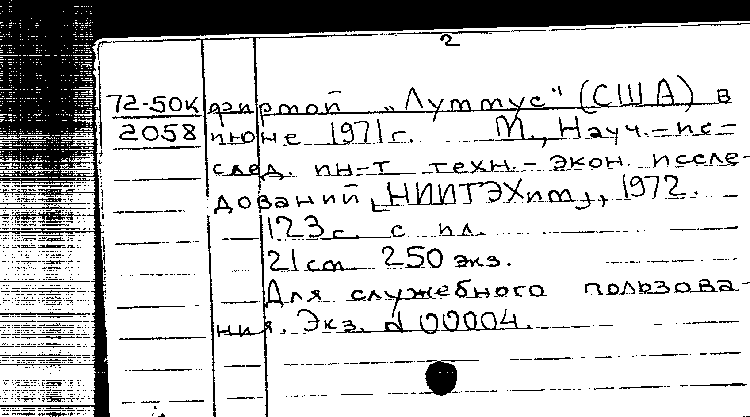 2
72-50К фирмой „Луммус" (США) в
2058 июне 1971г. М., Науч.-ис-
след. ин-т техн.-экон. иссле-
дований, [НИИТЭХим], 1972.
123с. с ил.
21см 250 экз.
Для служебного пользова-
ния. Экз. № 00004.